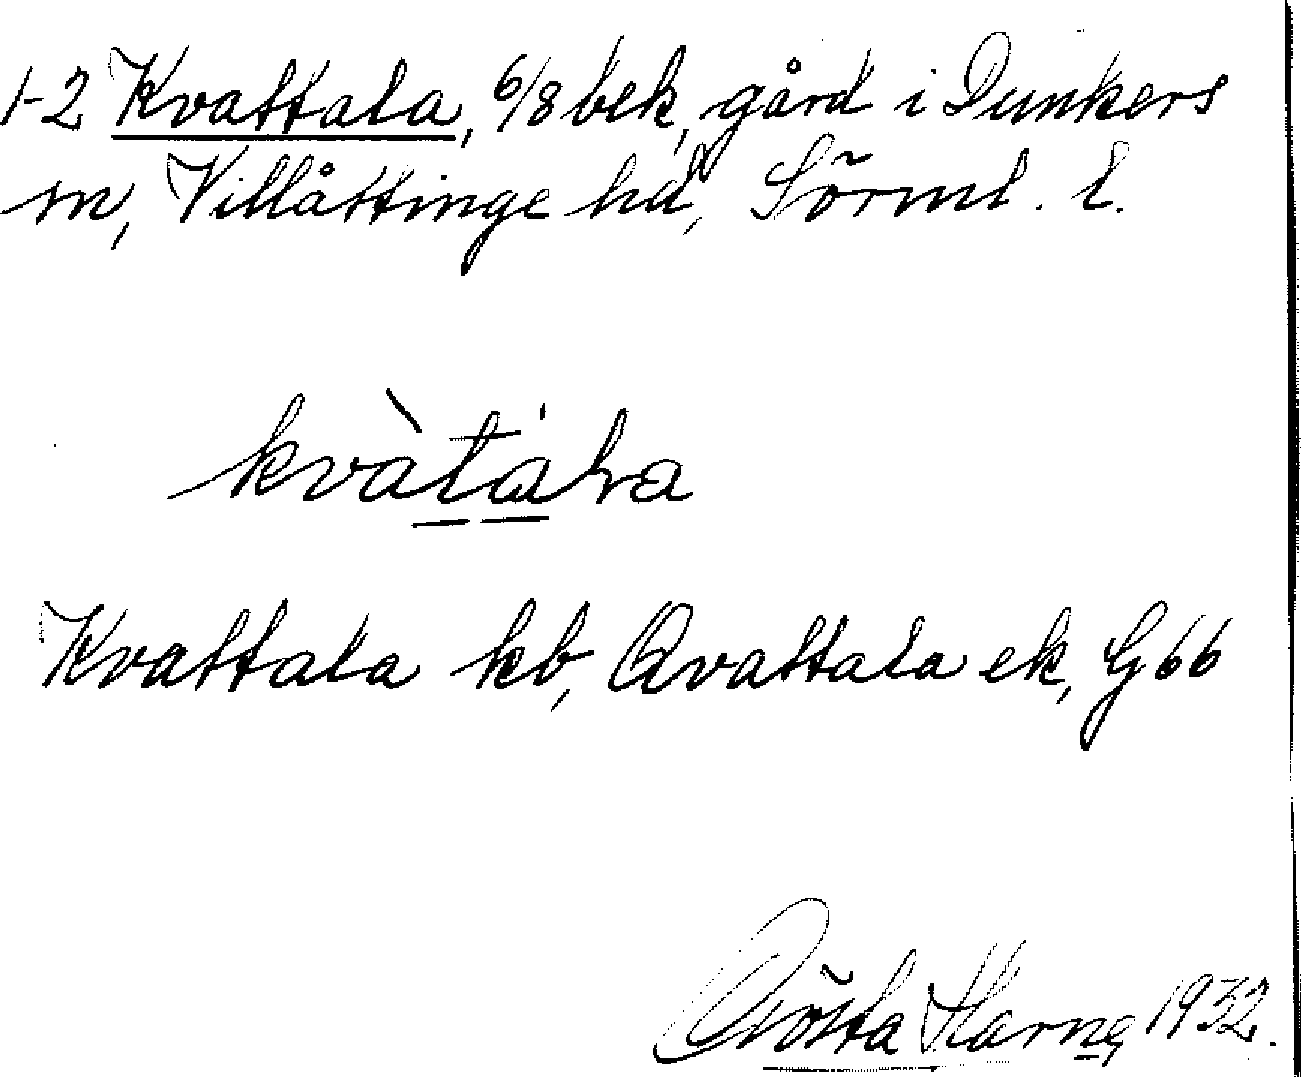 1-2 Kvattala, 6/8 bek, gård i Dunkers
sn, Villåttinge hd, Sörml. l.
kvàtála
Kvattala kb, Qvattala ek, G66
Gösta Harng 1932.